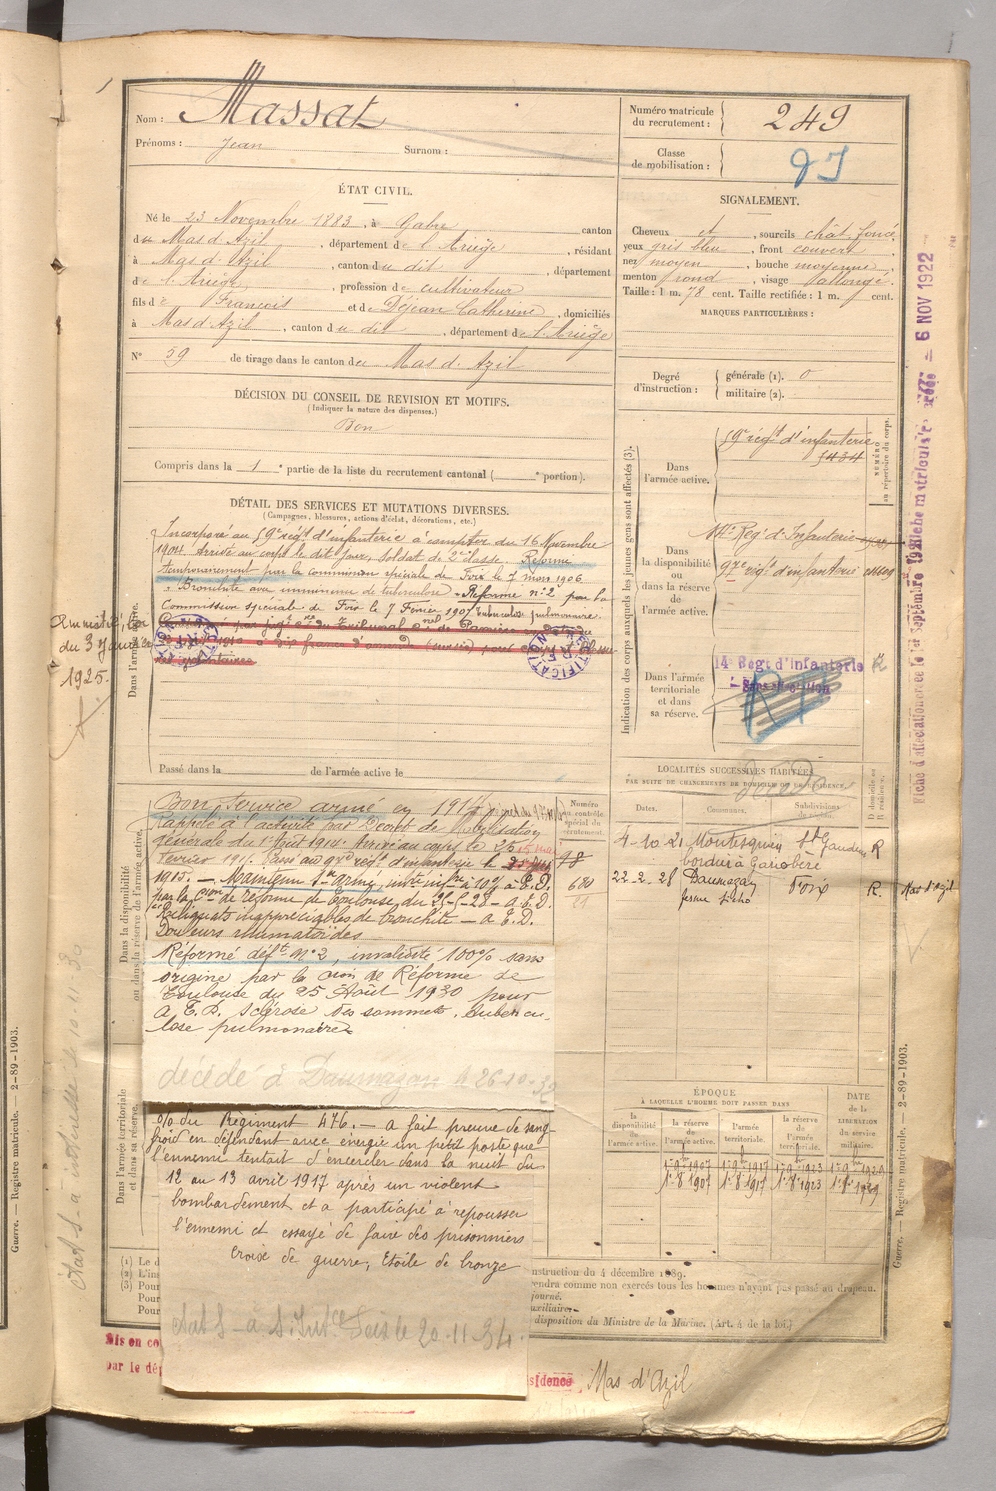 Nom : Massat
Prénoms : Jean Surnom :
Numéro matricule
du recrutement : 249
Classe
de mobilisation :
ÉTAT CIVIL.
Né le 23 Novembre 1883, à Gabre canton
du Mas d'Azil, département de l'Ariège, résidant
à Mas d'Azil, canton du dit, département
de l'Ariège, profession de cultivateur
fils de François et de Déjean Catherine, domiciliés
à Mas d'Azil, canton du dit, département de l'Ariège
N° 59 de tirage dans le canton de Mas d'Azil
SIGNALEMENT.
Cheveux et, sourcils chât. foncé
yeux gris bleu, front couvert
nez moyen, bouche moyenne
menton rond, visage allongé.
Taille : 1 m. 78 cent. Taille rectifiée : 1 m. cent.
MARQUES PARTICULIÈRES :
Degré
d'instruction :
générale (1). 0
militaire (2).
DÉCISION DU CONSEIL DE REVISION ET MOTIFS.
(Indiquer la nature des dispenses.)
Bon
Compris dans la 1 e partie de la liste du recrutement cantonal ( e portion).
DÉTAIL DES SERVICES ET MUTATIONS DIVERSES.
(Campagnes, blessures, actions d'éclat, décorations, etc.)
Incorporé au 59e régt d'infanterie à compter du 16 Novembre
1904. Arrivé au corps le dit jour, soldat de 2e classe. Réformé
temporairement par la commission spéciale de Foix le 7 mars 1906
Bronchite avec imminence de tuberculose. Réformé n° 2 par la
Commission spéciale de Foix le 7 Février 1907 Tuberculose pulmonaire.
Amnistié, loi
du 3 Janvier
1925.
Dans l'armée active.
Passé dans la de l'armée active le
Indication des corps auxquels les jeunes gens sont affectés (3).
Dans
l'armée active.
59e régt d'infanterie
5434
NUMÉRO
au répertoire du corps.
Dans
la disponibilité
ou
dans la réserve
de
l'armée active.
14e Régt d'Infanterie
97e régt d'infanterie
Dans l'armée
territoriale
et dans
sa réserve.
14e Régt d'Infanterie
Sans affectation
Fiche d'affectation créée le 1er Septembre 1921
6 NOV 1922
Dans la disponibilité
ou dans la réserve de l'armée active.
Bon service armé en 1914
Rappelé à l'activité par Décret de Mobilisation
générale du 1er Août 1914. Arrivé au corps le 25
Février 1915. Passé au 97e régt d'infanterie le 15 mai
1915. Maintenu Sce armé, invté infre à 10% A.E.D.
par la Cion de réforme de Toulouse du A.E.D.
Reliquats inappréciables de bronchite - A.E.D.
Douleurs rhumatoïdes
Réformé déft n° 2, invalidité 100% sans
origine par la Cion de Réforme de
Toulouse du 25 Août 1930 pour
A.E.D. Sclérose des sommets. Tubercu-
lose pulmonaire
décédé à Daumazan le 26-10-32
Numéro
au contrôle
spécial du
recrutement.
98
680
LOCALITÉS SUCCESSIVES HABITÉES
PAR SUITE DE CHANGEMENTS DE DOMICILE OU DE RÉSIDENCE.
Dates. Communes. Subdivisions
de région. D domicile ou
R résidence.
4-10-21 Montesquieu St Gaudens R
borduié à Gariobère
22-2-28 Daumazan Foix R. Mas d'Azil
ferme
Dans l'armée territoriale
et dans sa réserve.
O/o du Régiment 476. - A fait preuve de sang
froid en défendant avec énergie un petit poste que
l'ennemi tentait d'encercler dans la nuit du
12 au 13 avril 1917 après un violent
bombardement et a participé à repousser
l'ennemi et essayé de faire des prisonniers
Croix de guerre, Etoile de bronze
20.11.34.
ÉPOQUE
À LAQUELLE L'HOMME DOIT PASSER DANS
la
disponibilité
de
l'armée active.
la réserve
de
l'armée active.
l'armée
territoriale.
la réserve
de
l'armée
territoriale.
DATE
de la
LIBÉRATION
du service
militaire.
1er 9bre 1907 1er 9bre 1917 1er 9bre 1923 1er 9bre 1929
1er 8 1907 1er 8 1917 1er 8 1923 1er 8 1929
(1) Le d
(2) L'ins
(3) Pour
Pour
Pour
nstruction du 4 décembre 1889.
rendra comme non exercés tous les hommes n'ayant pas passé au drapeau.
journé.
uxiliaire.
disposition du Ministre de la Marine. (Art. 4 de la loi.)
Mis en co
par le dé
sidence Mas d'Azil
Guerre. — Registre matricule. — 2-89-1903.
Guerre. — Registre matricule. — 2-89-1903.